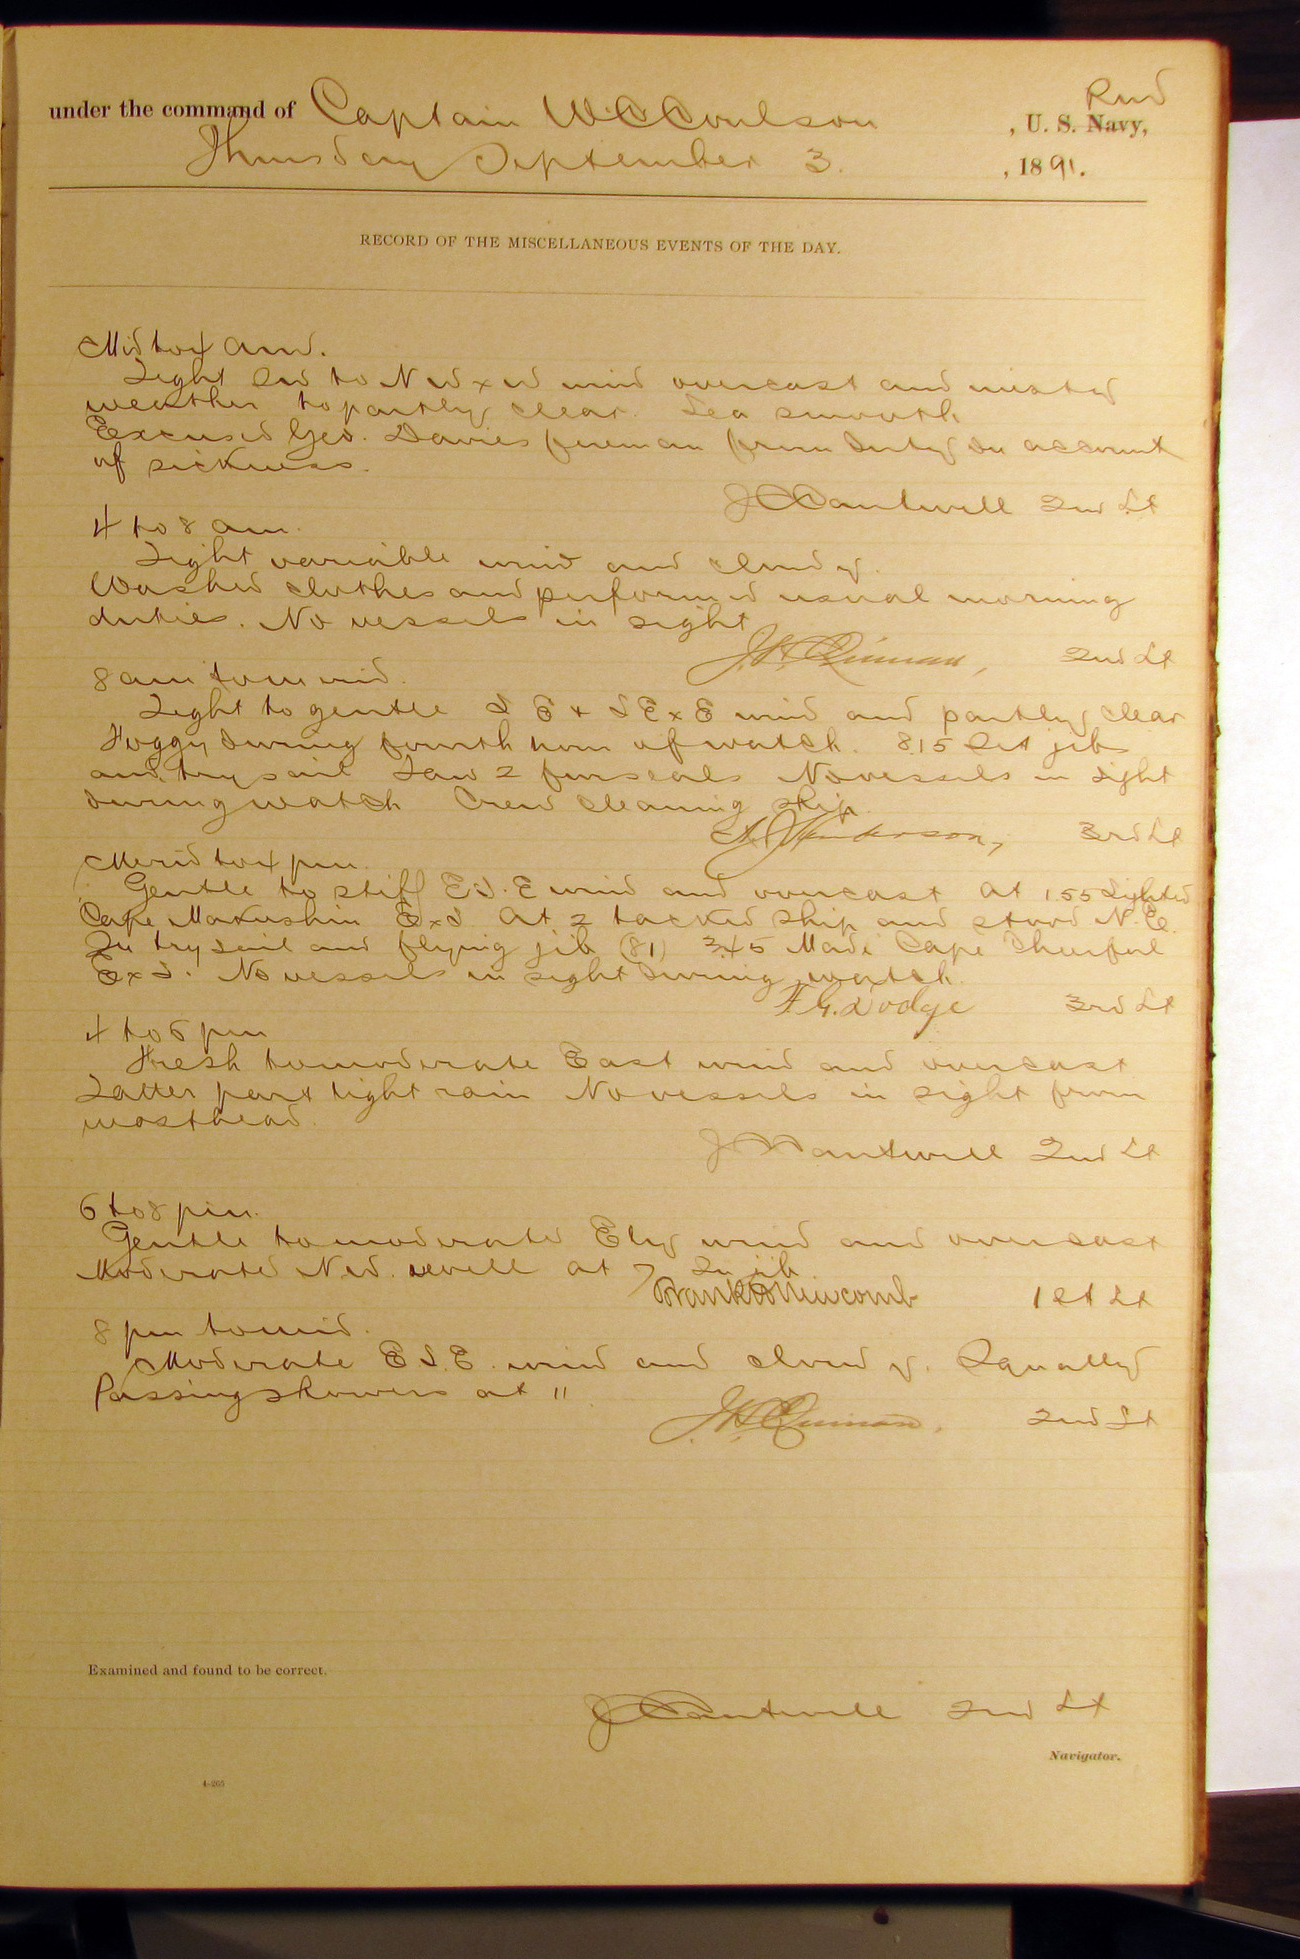 under the command of Captain W C Coulson Rev , U. S. Navy,
Thursday September 3. , 1891.
RECORD OF THE MISCELLANEOUS EVENTS OF THE DAY.
Mid to 4 am.
Light to N W x W wind overcast and misty
weather to partly clear. Sea smooth
Excused Geo. Davies fireman from duty on account
of sickness.
J C Cantwell 2nd Lt
4 to 8 am.
Light variable wind and cloudy.
Washed clothes and performed usual morning
duties. No vessels in sight
J. H. Quinan, 2nd Lt
8 am to merid.
Light to gentle S E & S E x E wind and partly clear
Foggy during fourth hour of watch. 8.15 Set jib
and trysail Saw 2 fur seals No vessels in sight
during watch Crew cleaning ship.
3rd Lt
Merid to 4 pm.
Gentle to stiff E S. E wind and overcast at 1.55 Sighted
Cape Makushin E x S At 2 tacked ship and stood N. E.
In try sail and flying jib (81) 3.45 Made Cape Cheerful
E x S. No vessels in sight during watch.
F. G. Dodge 3rd Lt
4 to 6 pm
Fresh to moderate East wind and overcast
Latter part light rain No vessels in sight from
masthead.
J C Cantwell 2nd Lt
6 to 8 pm.
Gentle to moderate Ely wind and overcast
Moderate N.W. swell at 7 In jib.
Frank H Newcomb 1st Lt
8 pm to mid.
Moderate E S. E. wind and cloudy. Squally
Passing showers at 11
J H Quinan. 2nd Lt
Examined and found to be correct.
J C Cantwell 2nd Lt
Navigator.
4-265